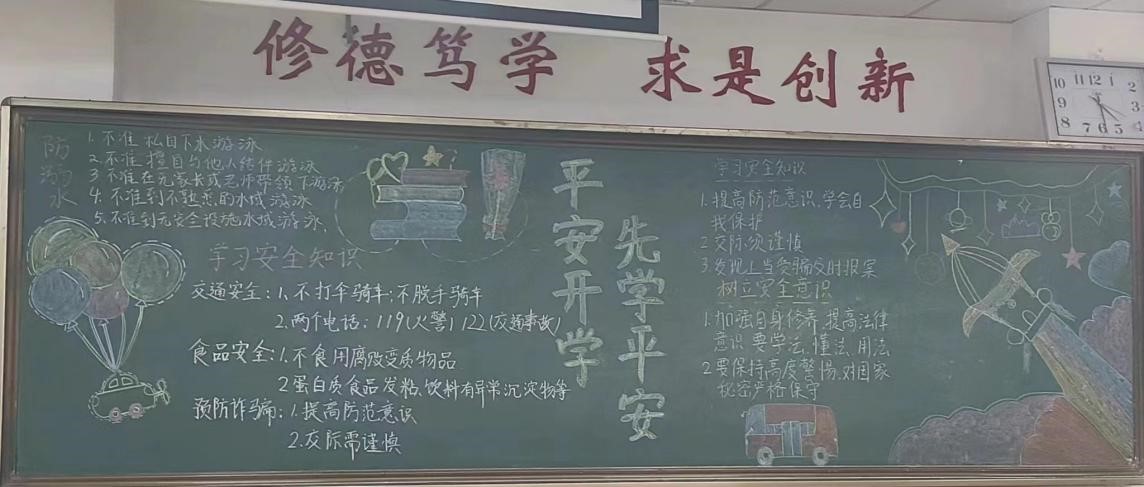 修德笃学 求是创新
防溺水
1.不准私自下水游泳
2.不准擅自与他人结伴游泳
3.不准在无家长或老师带领下游泳
4.不准到不熟悉的水域游泳
5.不准到无安全设施水域游泳
学习安全知识
交通安全:1、不打伞骑车;不脱手骑车
2.两个电话:119(火警)122(交通事故)
食品安全:1.不食用腐败变质物品
2蛋白质食品发粘、饮料有异常沉淀物等
预防诈骗:1.提高防范意识
2.交际需谨慎
平安开学
先学平安
学习安全知识
1.提高防范意识.学会自
我保护
2交际须谨慎
3.发现上当受骗及时报案
树立安全意识
1.加强自身修养.提高法律
意识要学法、懂法、用法
2要保持高度警惕.对国家
秘密严格保守
10 11 12 1 2 9 3 8 7 6 5 4